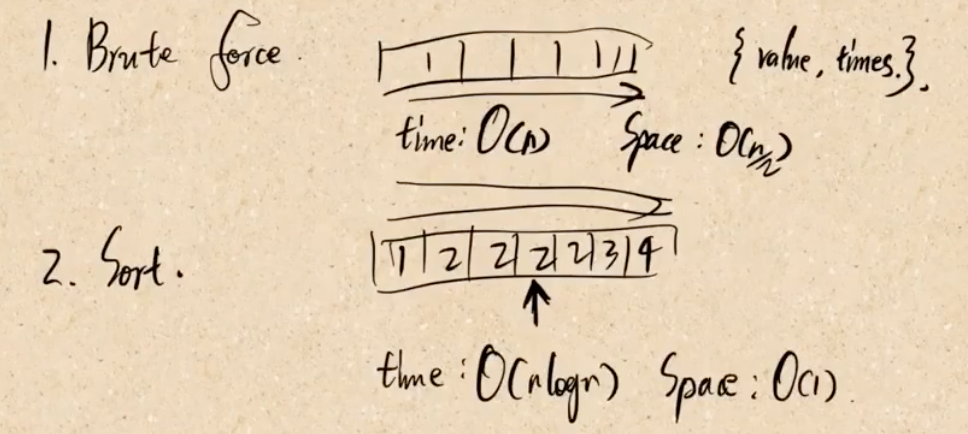 1. Brute force. {value, times.}.
time: O(n) Space: O(n/2)
2. Sort. 1 2 2 2 2 3 4
time: O(nlogn) Space: O(1).